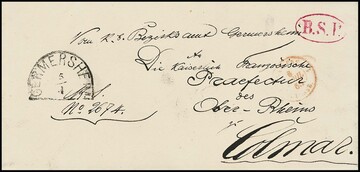 Vom K. B. Bezirksamt Germersheim
B.S.P.
An
Die Kaiserlich Französische
Praefectur
des
Obre-Rheins
zu
Colmar.
GERMERSHEIM
5
1
R. S.
No. 2674.